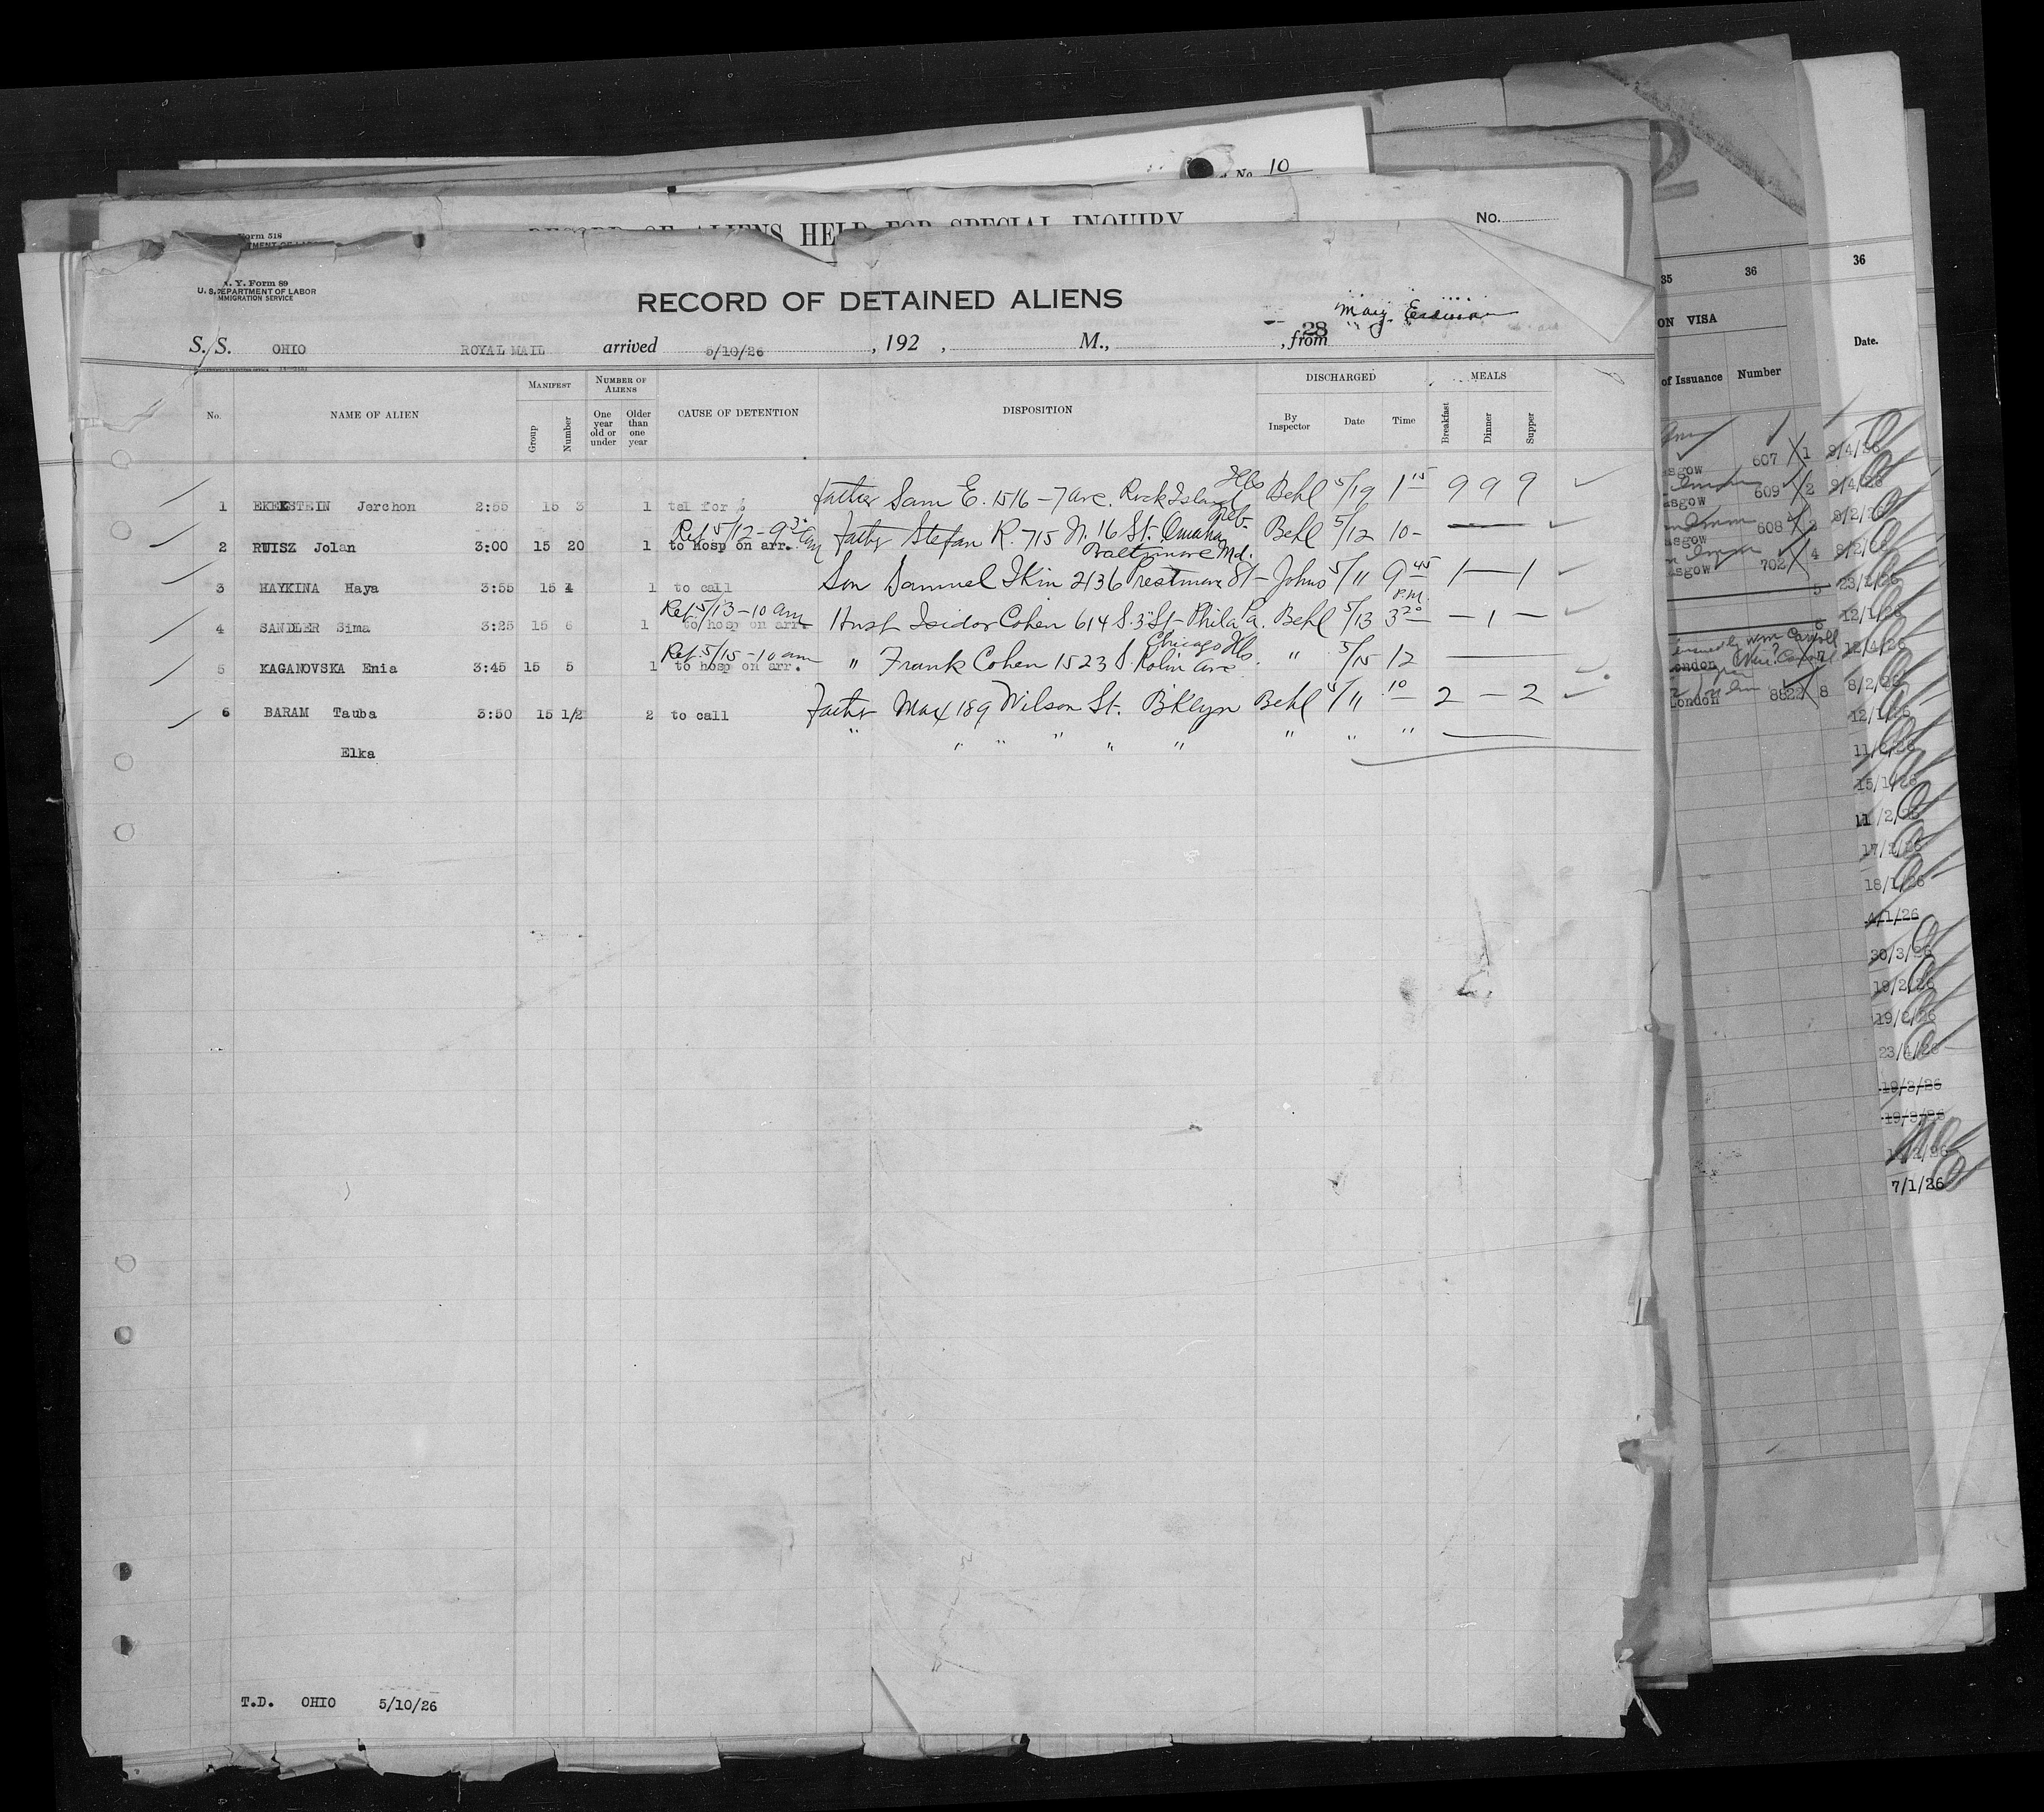 No. 10
RECORD OF ALIENS HELD FOR SPECIAL INQUIRY
No.
Form 518
N. Y. Form 89
U. S. DEPARTMENT OF LABOR
IMMIGRATION SERVICE
RECORD OF DETAINED ALIENS
28
S. S. OHIO ROYAL MAIL arrived 5/10/26, 192 , M., , from
No. NAME OF ALIEN MANIFEST Group Number NUMBER OF ALIENS One year old or under Older than one year CAUSE OF DETENTION DISPOSITION DISCHARGED By Inspector Date Time MEALS Breakfast Dinner Supper
1 EKEKSTEIN Jerchon 2:55 15 3 1 tel for $ Father Sam E. 1516 - 7 Ave. Rock Island Ills Behl 5/19 1 15 9 9 9
Ret. 5/12 - 9 30 am
2 RUISZ Jolan 3:00 15 20 1 to Hosp on arr. Father Stefan R. 715 N. 16 St. Omaha Neb. Behl 5/12 10 -
3 HAYKINA Haya 3:55 15 4 1 to call Son Samuel Ikin 2136 Prestman St - Baltimore Md. Johns 5/11 9 45 1 — 1
Ret. 5/13 - 10 am
4 SANDLER Sima 3:25 15 6 1 to hosp on arr. Husb Isidor Cohen 614 S. 3 St - Phila Pa. Behl 5/13 3 20 P.M. — 1 —
Ret. 5/15 - 10 am
5 KAGANOVSKA Enia 3:45 15 5 1 to hosp on arr. " Frank Cohen 1523 S. Kolin Ave. Chicago Ills. " 5/15 12
6 BARAM Tauba 3:50 15 1/2 2 to call Father Max 189 Wilson St. Bklyn Behl 5/11 10 2 — 2
Elka " " " " " " " " "
T.D. OHIO 5/10/26
35 36
ON VISA
of Issuance Number
asgow 607 1
asgow 609 2
asgow 608 3
asgow 702 4
5
6
London 7
London 8822 8
36
Date.
9/4/26
9/4/26
8/2/26
8/2/26
23/2/26
12/1/26
12/4/26
8/2/26
12/1/26
11/2/26
15/1/26
11/2/26
17/2/26
18/1/26
4/1/26
30/3/26
19/2/26
19/2/26
23/4/26
19/3/26
19/3/26
7/1/26